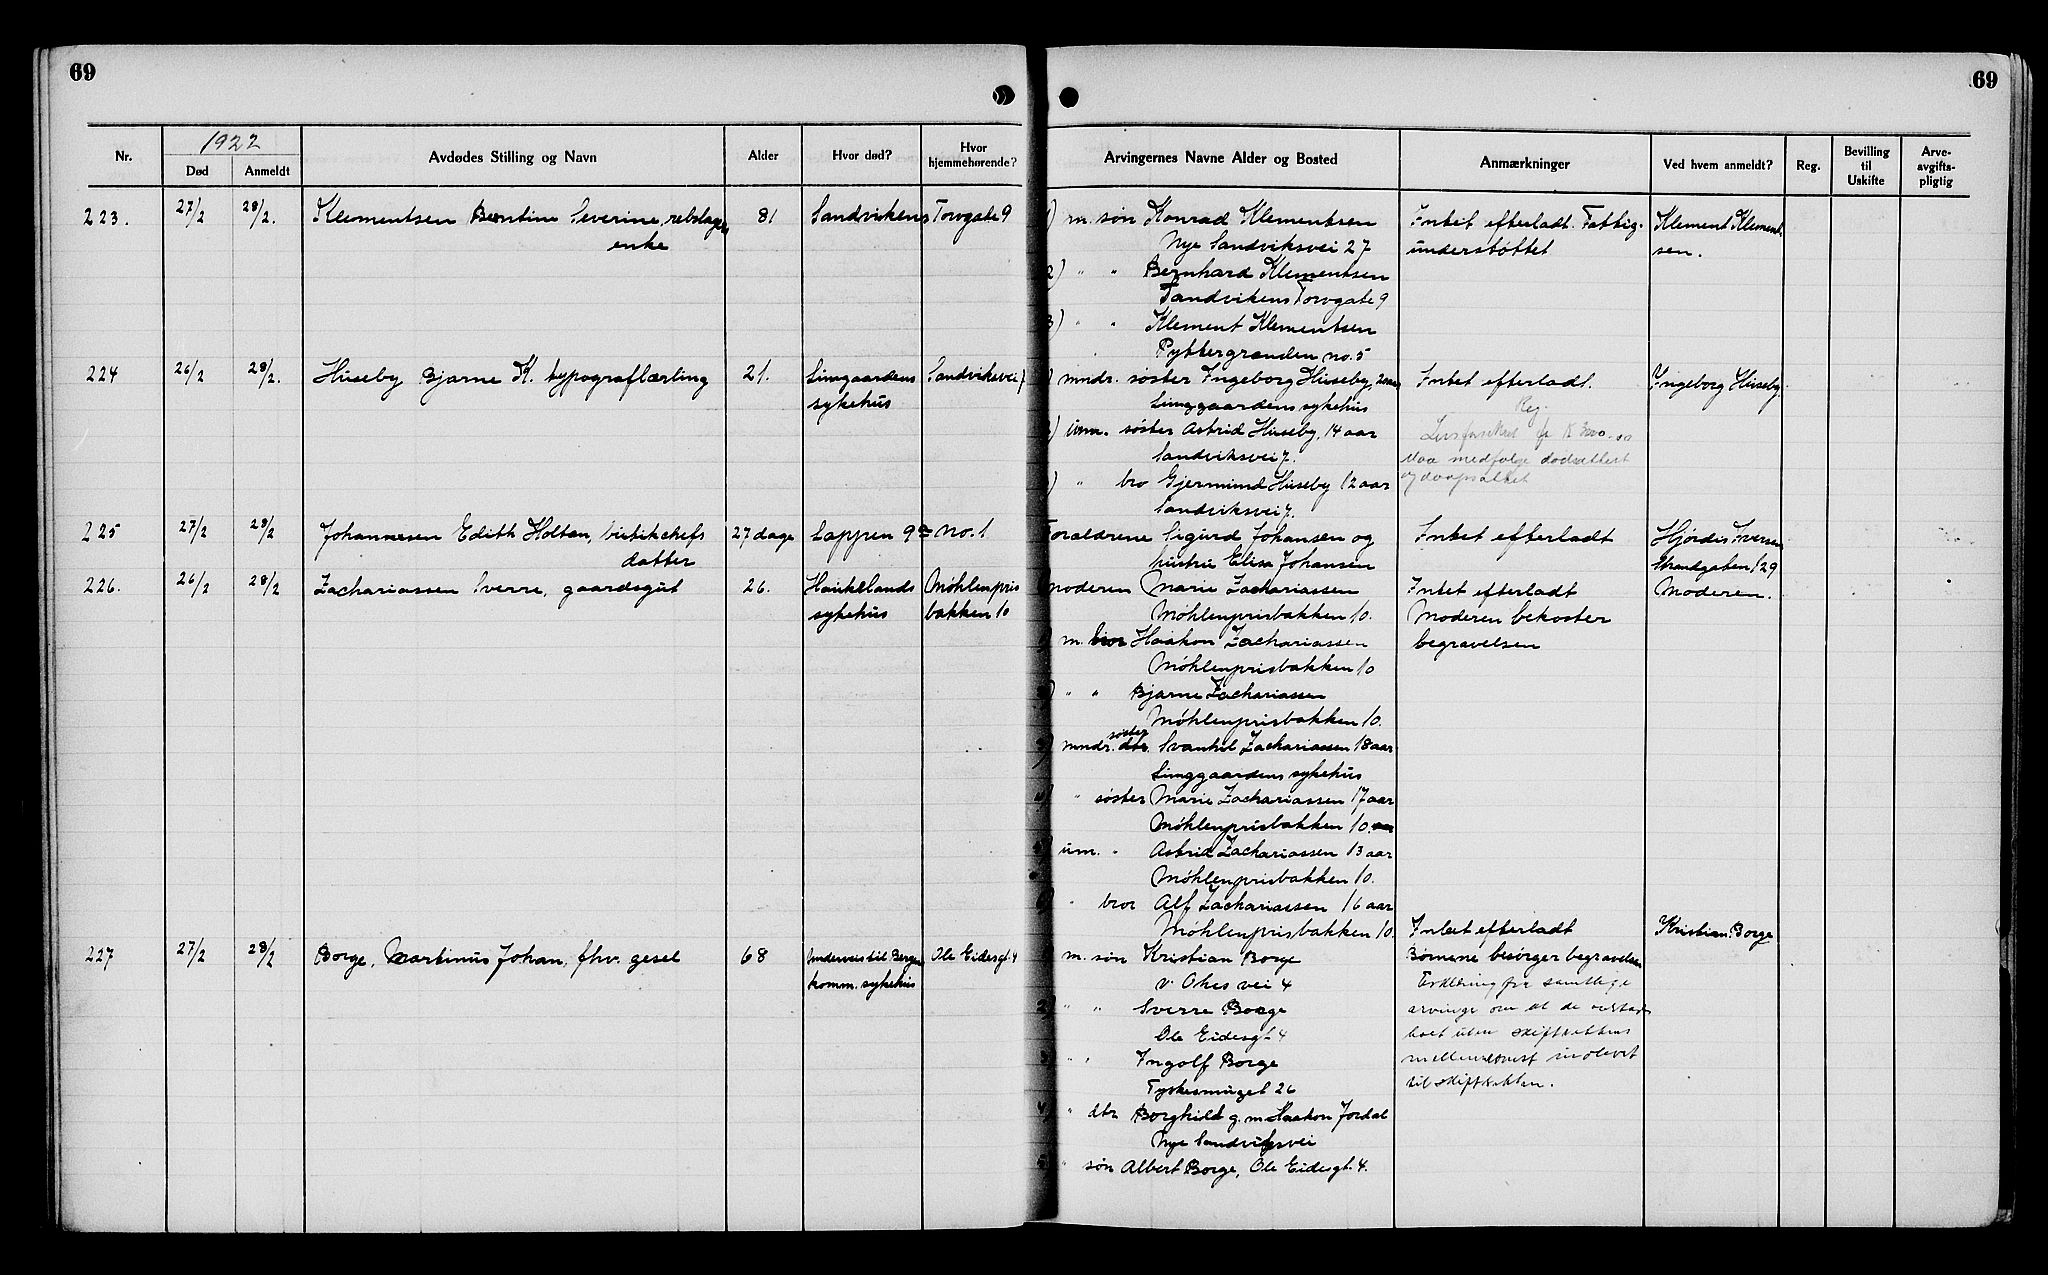 69
69
1922
Nr.
Død
Anmeldt
Avdødes Stilling og Navn
Alder
Hvor død?
Hvor
hjemmehørende?
Arvingernes Navne Alder og Bosted
Anmærkninger
Ved hvem anmeldt?
Reg.
Bevilling
til
Uskifte
Arve-
avgifts-
pligtig
223. 27/2 28/2. Klementsen Bentine Severine, rebslager
enke
81 Sandvikens Torvgate 9
1) m. søn Konrad Klementsen
Nye Sandviksvei 27
2) " " Bernhard Klementsen
Sandvikens Torvgate 9
3) " " Klement Klementsen
Pyttergranden no. 5
Intet efterladt. Fattig-
understøttet
Klement Klement-
sen.
224 26/2 28/2. Huseby Bjarne K. typograflærling
21. Lungaardens
sykehus
Sandviksvei 7
1) mndr. søster Ingeborg Huseby, 20 aar
Lunggaardens sykehus
2) unm. søster Astrid Huseby, 14 aar
Sandviksvei 7.
3) " bro Gjermund Huseby 12 aar
Sandviksvei 7.
Intet efterladt.
Reg.
Livsforsikret for K 3000.00
Maa medfølge dødsattest
og daapsattest
Ingeborg Huseby.
225 27/2 28/2 Johannesen Edith Holtan, butikchefs
datter
27 dage Lappen 9de no. 1
Foraldrene Sigurd Johansen og
hustru Elisa Johansen
Intet efterladt
Hjørdis Iversen
Strandgaten 129
226. 26/2 28/2 Zachariassen Sverre, gaardsgut
26. Haukelands
sykehus
Møhlenpris
bakken 10
moderen Marie Zachariassen
Møhlenprisbakken 10.
1) m. bror Haakon Zachariassen
Møhlenprisbakken 10
2) " " Bjarne Zachariassen
Møhlenprisbakken 10.
søster
3) mndr. dtr. Svanhil Zachariassen 18 aar
Lunggaardens sykehus
4) " søster Marie Zachariassen 17 aar
Møhlenprisbakken 10. aar
5) um. " Astrid Zachariassen 13 aar
Møhlenprisbakken 10.
6) " bror Alf Zachariassen 16 aar
Møhlenprisbakken 10.
Intet efterladt
Moderen bekoster
begravelsen
Moderen.
227 27/2 28/2 Borge, Martinus Johan, fhv. gesel
68 Underveis til Bergens
komm. sykehus
Ole Eidesgt. 4
m. søn Kristian Borge
v. Ohes vei 4
2) " " Sverre Borge
Ole Eidesgt. 4
3) " " Ingolf Borge
Tyskesmuget 26
4) " dtr Borghild g. m. Haakon Jordal
Nye Sandviksvei
5) " søn Albert Borge, Ole Eidesgt. 4.
Intet efterladt
Børnene besørger begravelsen
Erklæring fra samtlige
arvinge om at de overtar
boet uten skifterettens
mellemkomst indlevert
til skifteretten.
Kristian Borge